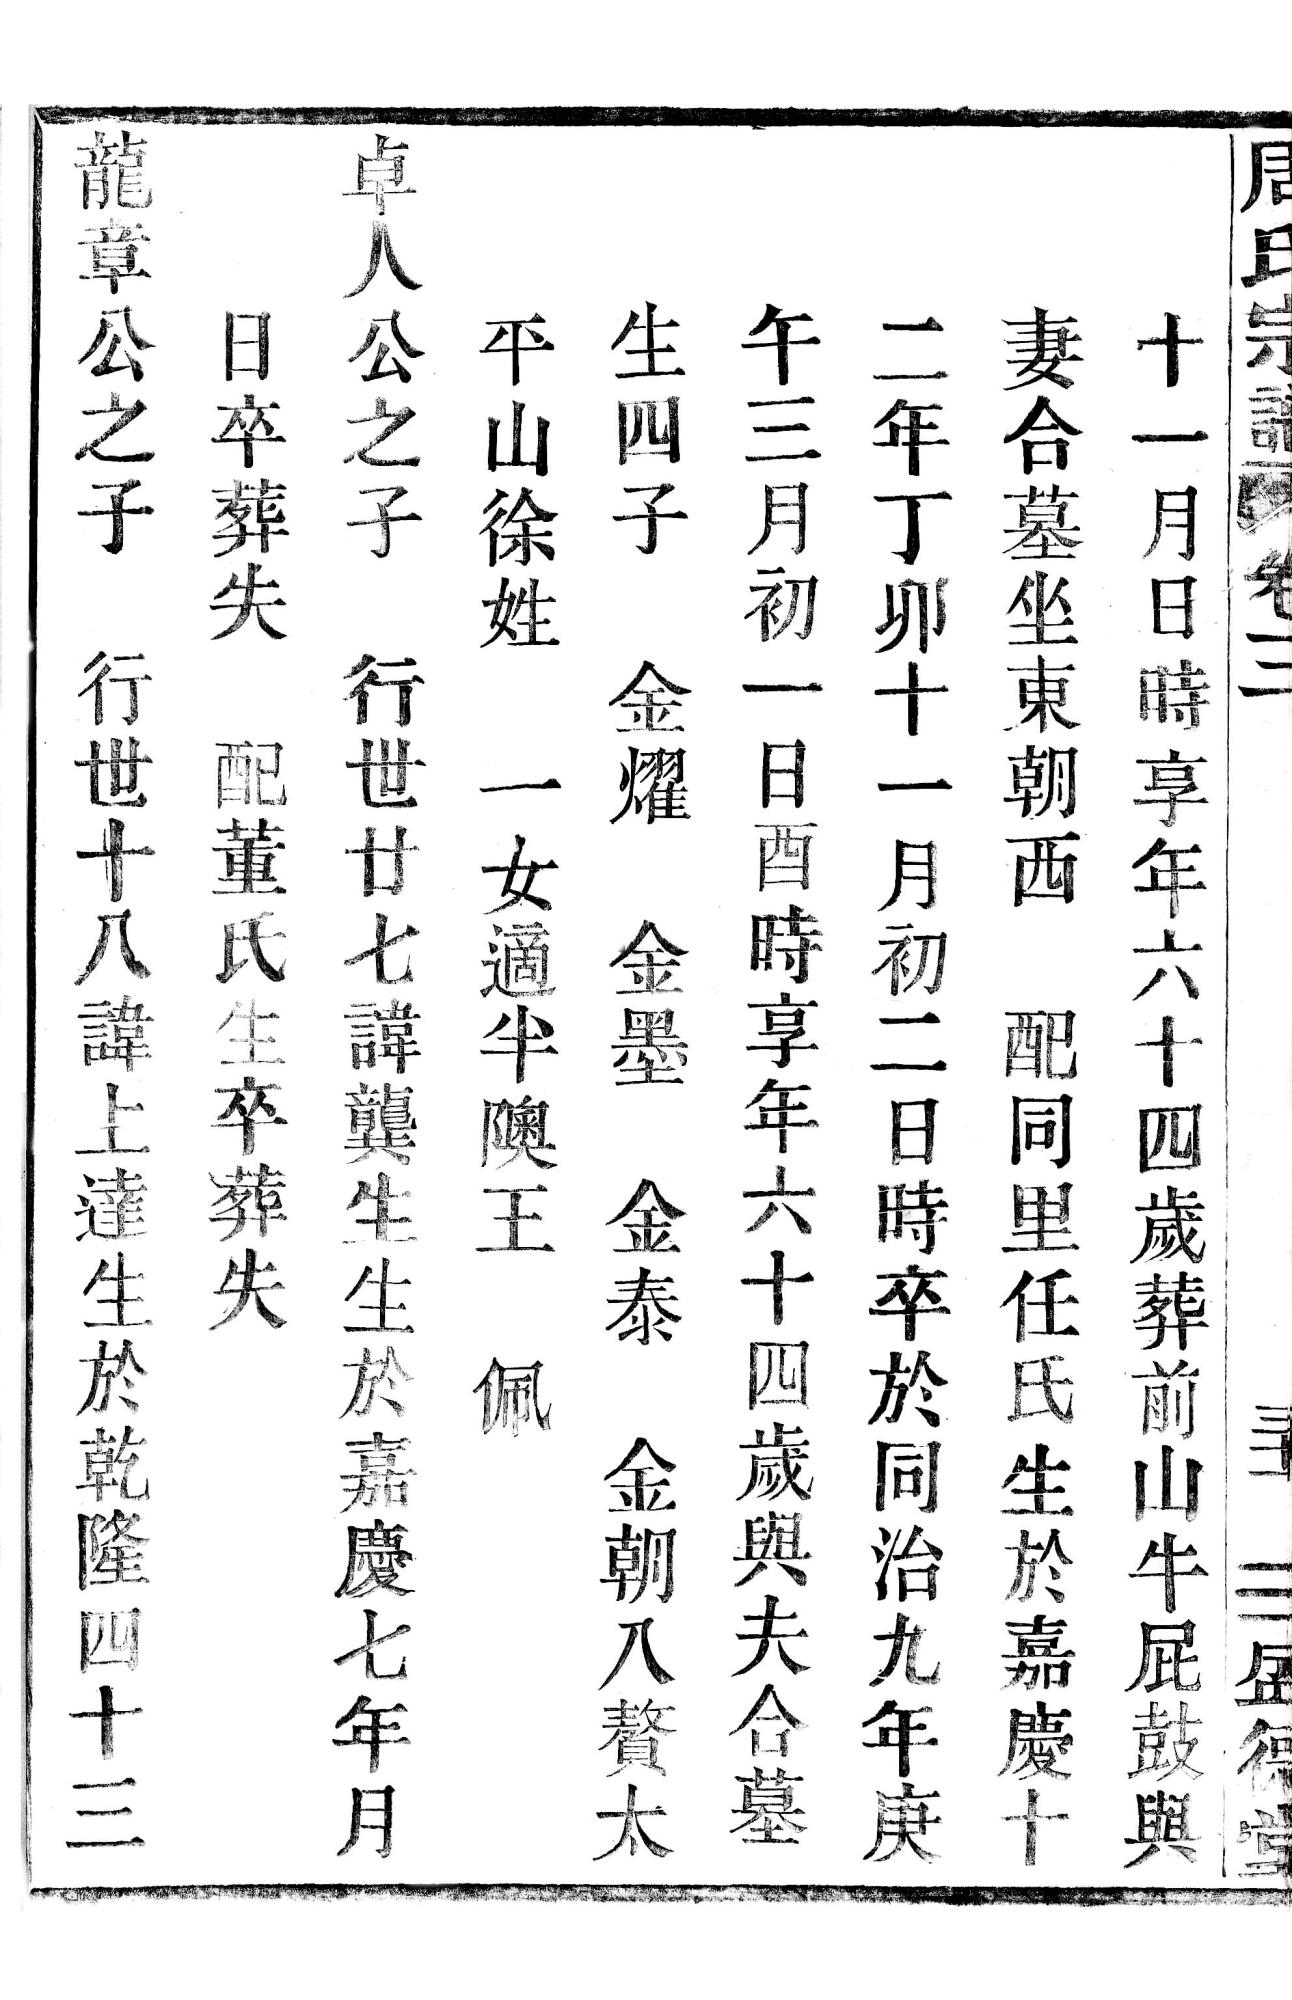 周氏宗譜 卷三 三盛德堂
十一月日時享年六十四歲葬前山牛屁鼓與
妻合墓坐東朝西 配同里任氏生於嘉慶十
二年丁卯十一月初二日時卒於同治九年庚
午三月初一日酉時享年六十四歲與夫合墓
生四子 金耀 金墨 金泰 金朝八贅太
平山徐姓 一女適半隩王 佩
卓人公之子 行世廿七諱龔生生於嘉慶七年月
日卒葬失 配董氏生卒葬失
龍章公之子 行世十八諱上達生於乾隆四十三